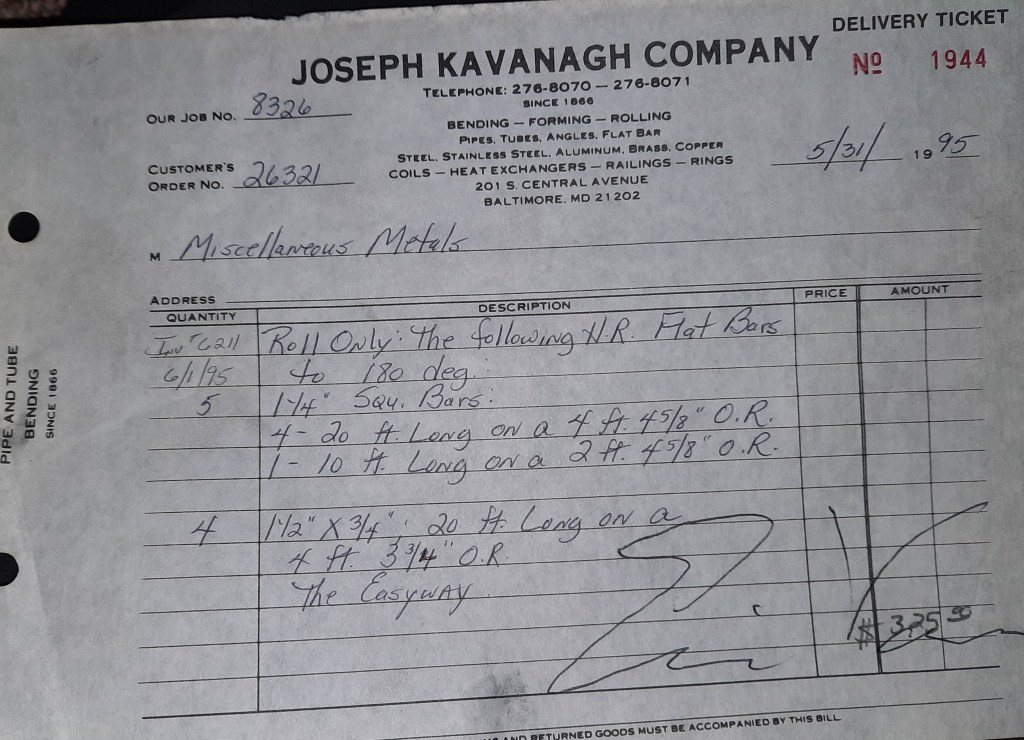 DELIVERY TICKET
JOSEPH KAVANAGH COMPANY
Nº 1944
TELEPHONE: 276-8070 — 276-8071
SINCE 1866
OUR JOB NO. 8326
BENDING — FORMING — ROLLING
PIPES, TUBES, ANGLES, FLAT BAR
STEEL, STAINLESS STEEL, ALUMINUM, BRASS, COPPER
COILS — HEAT EXCHANGERS — RAILINGS — RINGS
201 S. CENTRAL AVENUE
BALTIMORE, MD 21202
CUSTOMER'S
ORDER NO. 26321
5/31/ 19 95
M Miscellaneous Metals
ADDRESS
QUANTITY DESCRIPTION PRICE AMOUNT
Inv# 6211 Roll Only: The following H.R. Flat Bars
6/1/95 to 180 deg.
5 1 1/4" Squ. Bars:
4 - 20 ft. Long on a 4 ft. 4 5/8" O.R.
1 - 10 ft. Long on a 2 ft. 4 5/8" O.R.
4 1 1/2" X 3/4": 20 ft. Long on a
4 ft. 3 3/4" O.R.
The Easyway
$ 325
PIPE AND TUBE
BENDING
SINCE 1866
AND RETURNED GOODS MUST BE ACCOMPANIED BY THIS BILL